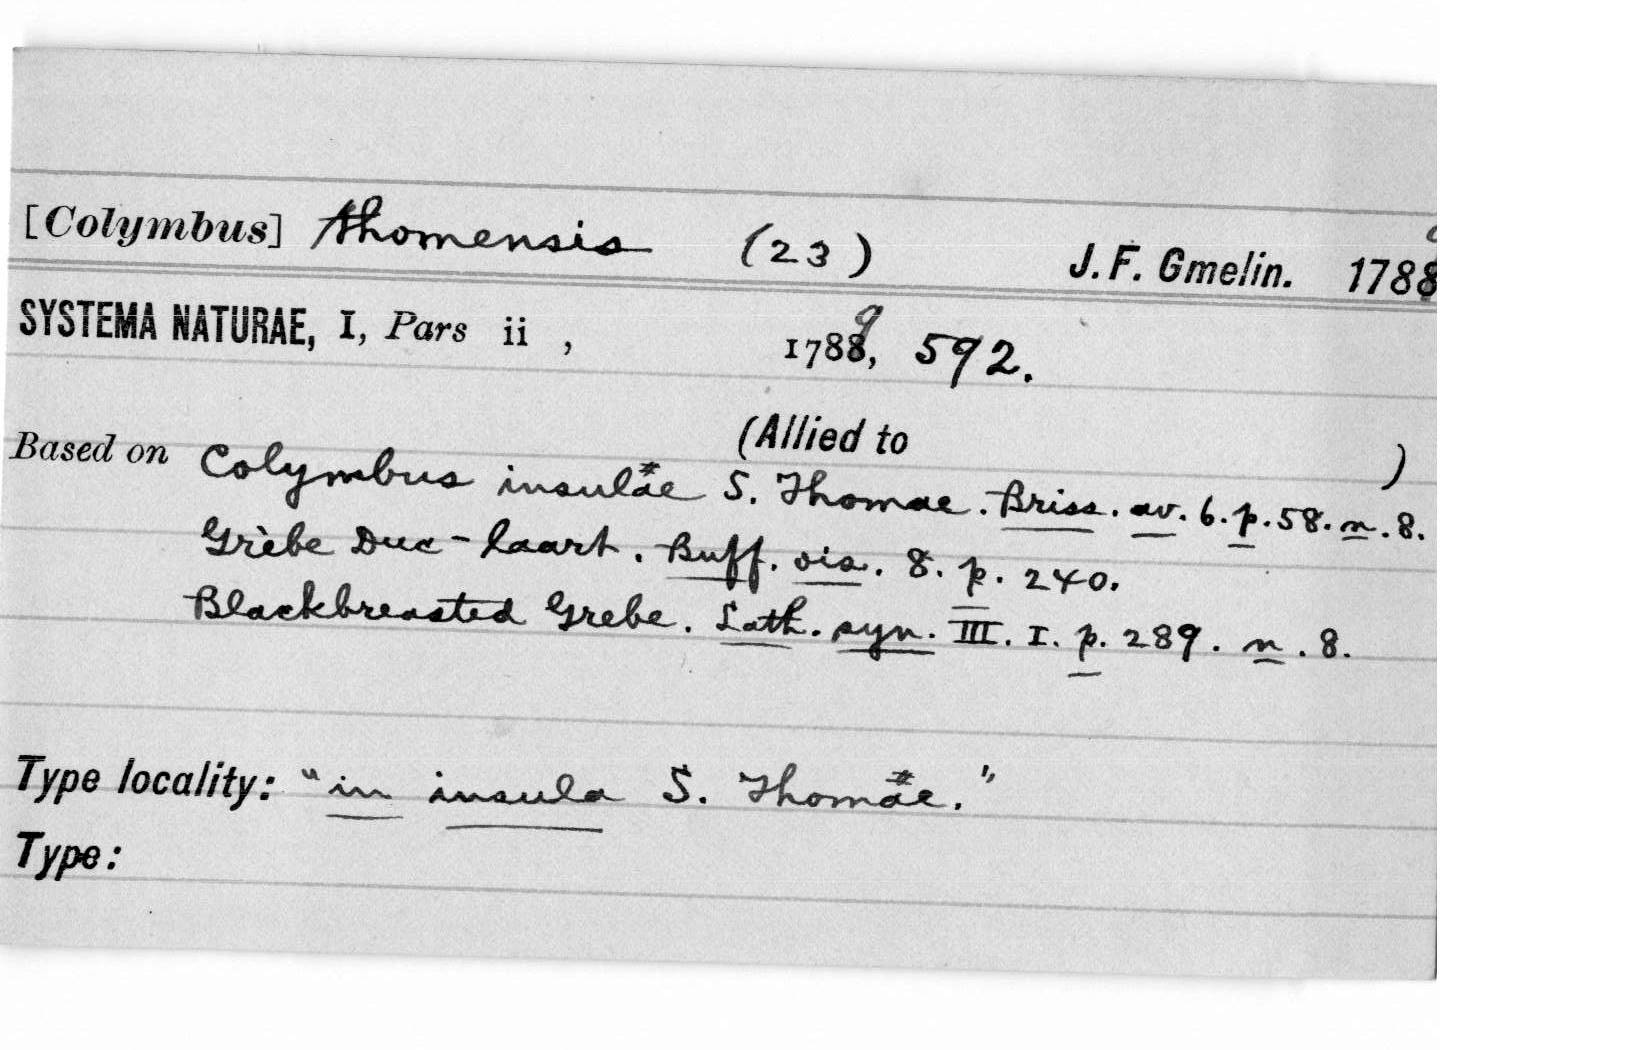 [Colymbus] thomensis (23) J. F. Gmelin. 1788
SYSTEMA NATURAE, I, Pars ii , 1789, 592.
(Allied to )
Based on Colymbus insulae S. Thomae. Briss. av. 6. p. 58. n. 8.
Grèbe Duc-laart. Buff. ois. 8. p. 240.
Blackbreasted Grebe. Lath. syn. III. I. p. 289. n. 8.
Type locality: "in insula S. Thomae."
Type: